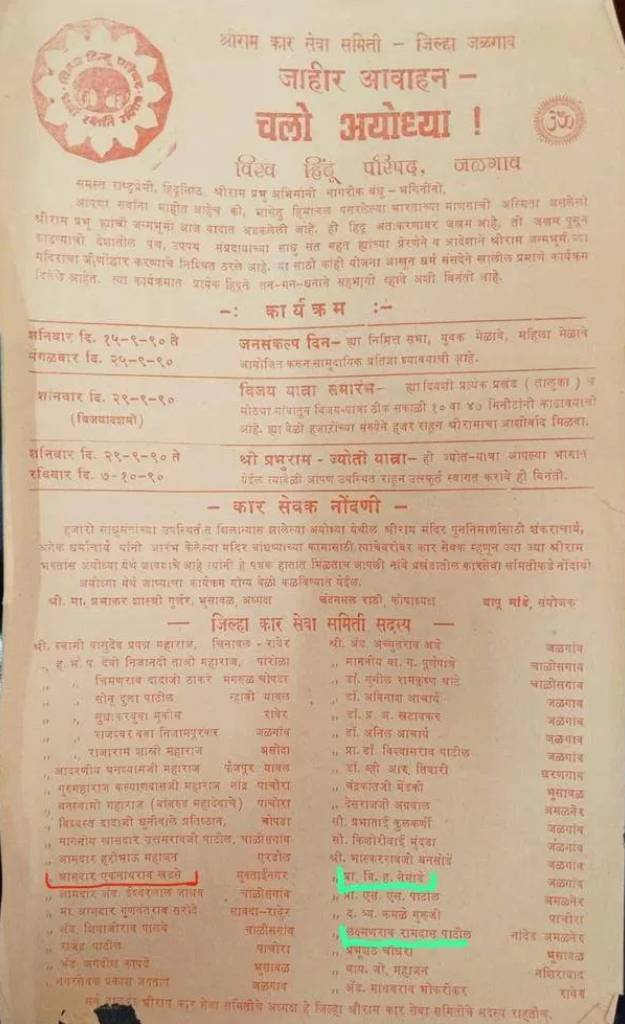 श्रीराम कार सेवा समिती - जिल्हा जळगाव
जाहीर आवाहन -
चलो अयोध्या !
विश्व हिंदू परिषद, जळगाव
समस्त राष्ट्रप्रेमी, हिंदूनिष्ठ श्रीराम प्रभु अभिमानी नागरीक बंधु - भगिनींनो,
आपणा सर्वांना माहीत आहेच की, भारताच्या अस्मिता असलेली
श्रीराम प्रभु ह्यांची जन्मभूमी आज वादात अडकलेली आहे. ही हिंदू अंतःकरणावर जखम आहे. ती जखम पुसून
काढण्याची देशातील पंथ, उपपंथ संप्रदायांच्या साधु संत महंत ह्यांच्या प्रेरणेने व आदेशाने श्रीराम जन्मभूमी
मंदिराचा जीर्णोद्धार करण्याचे निश्चित ठरले आहे. या साठी काही योजना आखून धर्म संसदेने खालील प्रमाणे कार्यक्रम
दिलेले आहेत. त्या कार्यक्रमात प्रत्येक हिंदूने तन-मन-धनाने सहभागी व्हावे अशी विनंती आहे.
-: कार्यक्रम :-
शनिवार दि. १५-९-९० ते जनसंकल्प दिन- ह्या निमित्त सभा, युवक मेळावे, महिला मेळावे
मंगळवार दि. २५-९-९० आयोजित करुन सामुदायिक प्रतिज्ञा घ्यावयाची आहे.
शनिवार दि. २९-९-९० विजय यात्रा समारंभ- ह्या दिवशी प्रत्येक प्रखंड (तालुका) व
(विजयादशमी) मोठ्या गांवातून विजय-यात्रा ठीक सकाळी १० वा ४७ मिनीटांनी काढावयाची
आहे. ह्या वेळी हजारोंच्या संख्येने हजर राहून श्रीरामाचा आशीर्वाद मिळवा.
शनिवार दि. २९-९-९० ते श्री प्रभुराम - ज्योती यात्रा- ही ज्योत-यात्रा आपल्या भागात
रविवार दि. ७-१०-९० येईल त्यावेळी आपण उपस्थित राहून उत्स्फूर्त स्वागत करावे ही विनंती.
- कार सेवक नोंदणी -
हजारो साधुसंतांच्या उपस्थितीत शिलान्यास झालेल्या अयोध्या येथील श्रीराम मंदिर पुननिर्माणासाठी शंकराचार्य,
अनेक धर्माचार्य यांनी आरंभ केलेल्या मंदिर बांधण्याच्या कामासाठी त्यांचेबरोबर कार सेवक म्हणून ज्या ज्या श्रीराम
भक्तांस अयोध्या येथे जावयाचे आहे त्यांनी हे पत्रक हातात मिळताच आपली नावे प्रखंडातील कारसेवा समितीकडे नोंदावी
अयोध्या येथे जाण्याचा कार्यक्रम योग्य वेळी कळविण्यात येईल.
श्री. मा. प्रभाकर शास्त्री गुर्जर, भुसावळ, अध्यक्ष चंदनमल राठी, कोषाध्यक्ष बापू मांडे, संयोजक
- जिल्हा कार सेवा समिती सदस्य -
श्री. स्वामी वासुदेव प्रपन्न महाराज, चिनावल - रावेर
,, ह. भ. प. देवी निजानंदी ताश्री महाराज, पारोळा
,, ,, चिमणराव दादाजी ठाकरे मंगरुळ चोपडा
,, ,, सोनु दुला पाटील न्हावी यावल
,, ,, सुधाकरबुवा मुकीम रावेर
,, ,, राजेश्वर बुवा निजामपुरकर जळगांव
,, ,, राजाराम शास्त्री महाराज असोदा
,, आदरणीय घनश्यामजी महाराज फैजपूर यावल
,, गुरुमहाराज कल्याणदासजी महाराज नांद्र पाचोरा
,, बनस्वामी महाराज पाचोरा
,, विश्वस्त दादाजी धुनीवाले प्रतिष्ठान, चोपडा
,, माननीय खासदार उत्तमरावजी पाटील, चाळीसगांव
,, आमदार हरीभाऊ महाजन एरंडोल
,, आमदार एकनाथराव खडसे मुक्ताईनगर
,, आमदार अॅड. ईश्वरलाल जाधव चाळीसगांव
,, मा. आमदार गुणवंतराव सरोदे सावदा-रावेर
,, अॅड. शिवाजीराव पालवे चाळीसगांव
,, राजेंद्र पाटील पाचोरा
,, अॅड जगदीश कापडे भुसावळ
,, नगरसेवक प्रकाश जगताप जळगांव
श्री. अॅड. अच्युतराव अत्रे जळगांव
,, माननीय वा. ग. पूर्णपात्रे चाळीसगांव
,, डॉ. सुनील रामकृष्ण घाटे चाळीसगांव
,, डॉ. अविनाश आचार्य जळगांव
,, डॉ. प्र. अ. खटावकर जळगांव
,, डॉ. अनिल आचार्य जळगांव
,, प्रा. डॉ. विश्वासराव पाटील जळगांव
,, डॉ. व्ही आर. तिवारी धरणगांव
,, चंद्रकांतजी मेंडकी भुसावळ
,, देसराजजी अग्रवाल अमळनेर
सौ. प्रभाताई कुलकर्णी जळगांव
सौ. किशोरीबाई मुंदडा जळगांव
श्री. भास्करराव‍जी बनसोडे जळगांव
,, प्रा. वि. ह. नेमाडे जळगांव
,, प्रा. एस. एस. पाटील अमळनेर
,, द. त्र्य. कमळे गुरुजी पाचोरा
,, लक्ष्मणराव रामदास पाटील नांदेड अमळनेर
,, प्रभूशेठ चौधरी भुसावळ
,, वाय. जी. महाजन नशिराबाद
,, अॅड. माधवराव भोकरीकर रावेर
सर्व तालुका श्रीराम कार सेवा समितीचे अध्यक्ष हे जिल्हा श्रीराम कार सेवा समितीचे सदस्य राहतील.